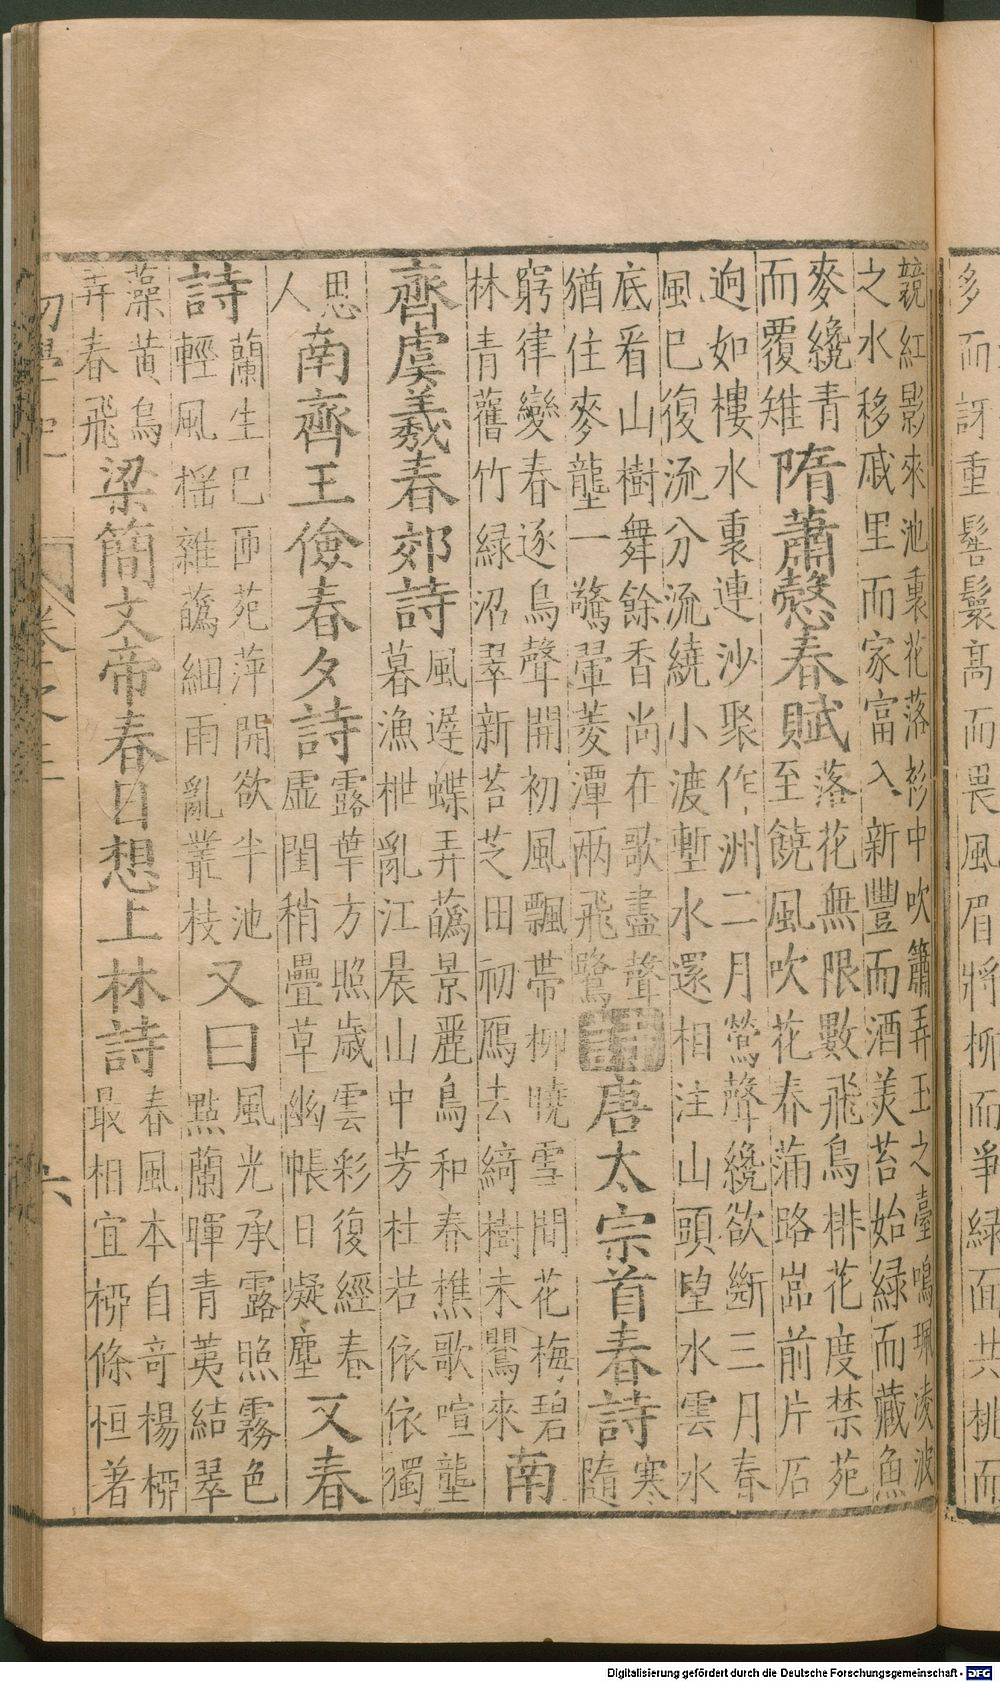 多而訝重髻鬟髙而畏風眉將柳而爭綠面共桃而
競紅影來池裏花落衫中吹簫弄玉之臺鳴珮凌波
之水移戚里而家富入新豐而酒美苔始綠而藏魚
麥纔青
而覆雉
隋蕭愨春賦
落花無限數飛鳥排花度禁苑
至饒風吹花春蒲路岧前片石
逈如樓水裏連沙聚作洲二月鶯聲纔欲斷三月春
風已復流分流繞小渡塹水還相注山頭望水雲水
底看山樹舞餘香尚在歌盡聲
猶住麥壟一驚翬菱潭兩飛鷺
詩
唐太宗首春詩
寒
隨
窮律變春逐鳥聲開初風飄帶柳曉雪間花梅碧
林青舊竹綠沼翠新苔芝田初鴈去綺樹未鸎來
南
齊虞羲春郊詩
風遲蝶弄蘤景麗鳥和春樵歌喧壟
暮漁枻亂江晨山中芳杜若依依獨
思
人
南齊王儉春夕詩
露葉方照歲雲彩復經春
虛閨稍疊草幽帳日凝塵
又春
詩
蘭生已匝苑萍開欲半池
輕風搖雜蘤細雨亂叢枝
又曰
風光承露照霧色
點蘭暉青荑結翠
藻黃鳥
弄春飛
梁簡文帝春日想上林詩
春風本自奇楊柳
最相宜柳條恒著
Digitalisierung gefördert durch die Deutsche Forschungsgemeinschaft - DFG